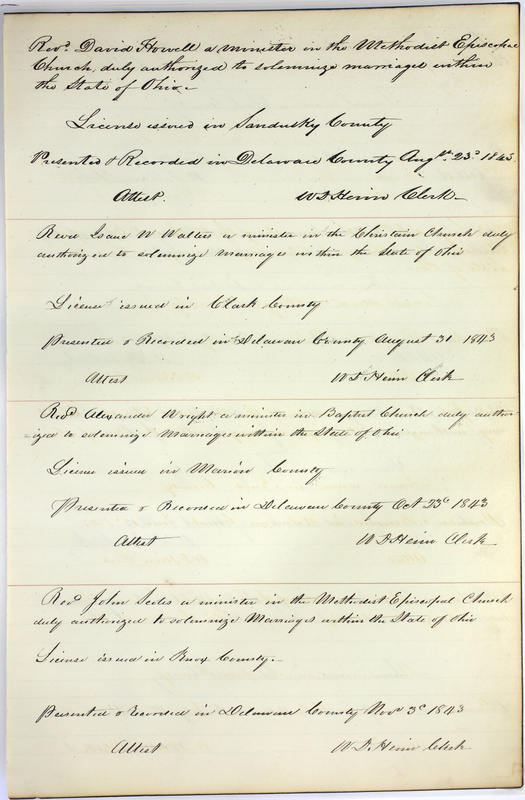 Revd. David Howell a minister in the Methodist Episcopal
Church, duly authorized to solemnize marriages within
the State of Ohio.
License issued in Sandusky County
Presented & Recorded in Delaware County Augst. 23d 1843.
Attest. W D Heim Clerk
Revd Isaac N Walters a minister in the Christain Church duly
authorized to solemnize marriages within the State of Ohio
License issued in Clark County
Presented & Recorded in Delaware County August 31 1843
Attest W D Heim Clerk
Revd Alexander Wright a minister in Baptist Church duly author
-ized to solemnize marriages within the State of Ohio
License issued in Marion County
Presented & Recorded in Delaware County Oct 23d 1843
Attest W D Heim Clerk
Revd John a minister in the Methodist Episcopal Church
duly authorized to solemnize Marriages within the State of Ohio
License issued in Knox County.
Presented & Recorded in Delaware County Nov 3d 1843
Attest W D. Heim Clerk